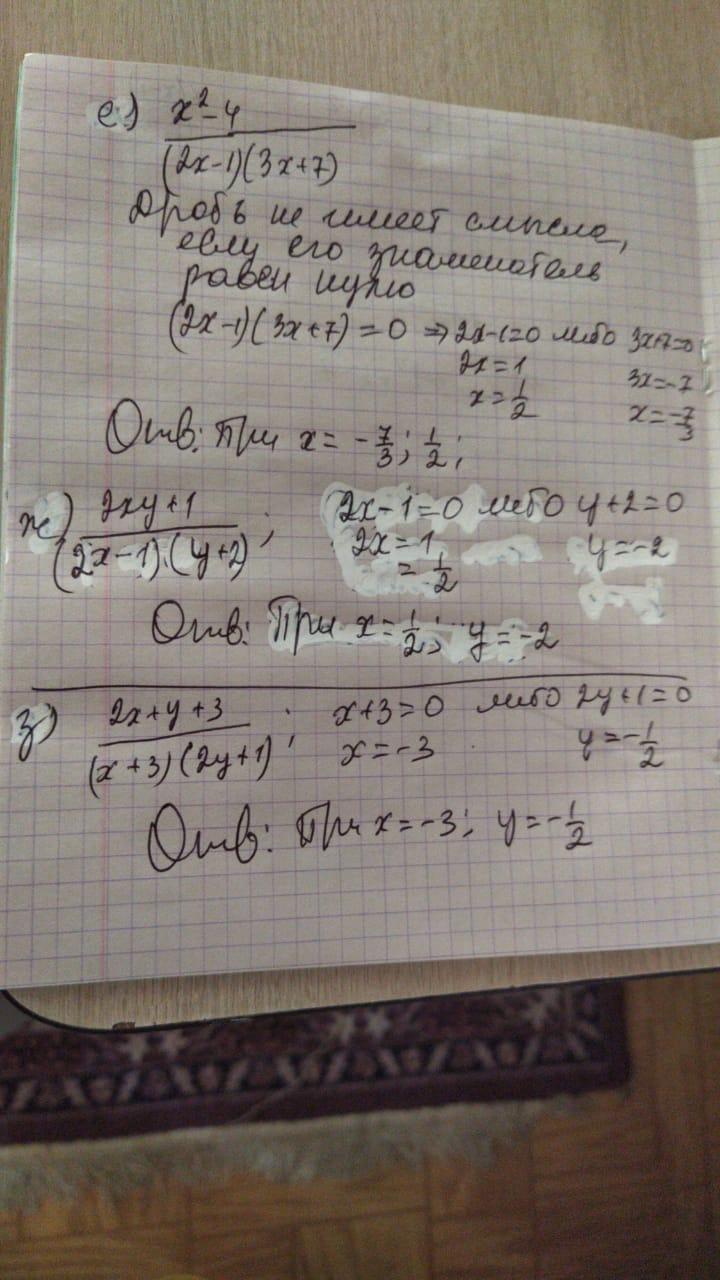 е) x²-4
(2x-1)(3x+7)
Дробь не имеет смысла,
если его знаменатель
равен нулю
(2x-1)(3x+7)=0 ⇒ 2x-1=0 либо 3x+7=0
2x=1 3x=-7
x=1/2 x=-7/3
Отв: При x= -7/3; 1/2;
ж) 2xy+1
(2x-1)·(y+2) ; 2x-1=0 либо y+2=0
2x=1 y=-2
= 1/2
Отв: При x=1/2; y=-2
з) 2x+y+3
(x+3)(2y+1) ; x+3=0 либо 2y+1=0
x=-3 y=-1/2
Отв: При x=-3; y=-1/2